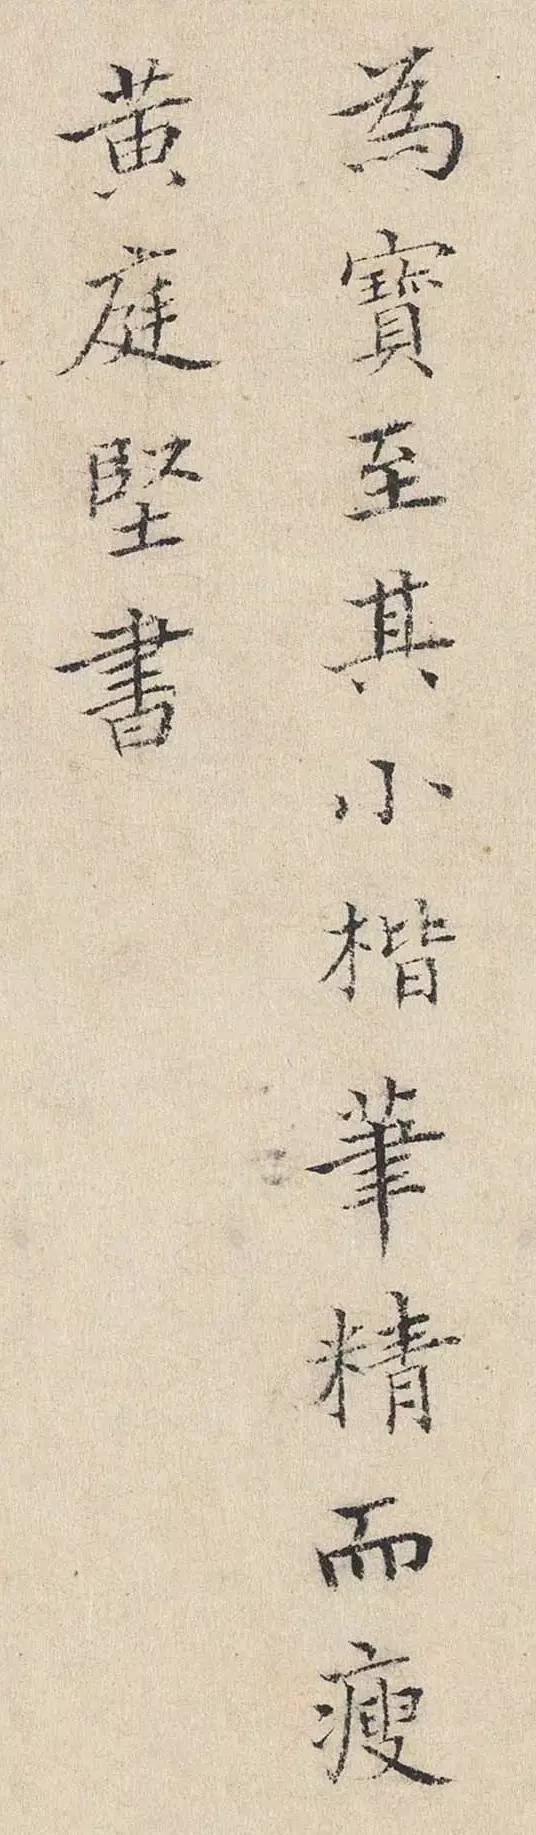 為寳至其小楷筆精而瘦
黄庭堅書